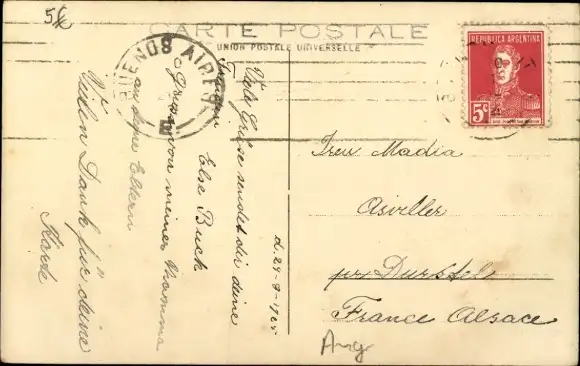 5€
CARTE POSTALE
UNION POSTALE UNIVERSELLE
BUENOS AIRES
E
REPUBLICA ARGENTINA
5c
Viele Grüsse sendet dir deine
Freundin
Else Buck
Grüsse von meiner Mamma
an deine Eltern
Vielen Dank für deine
Karte
d. 24-9-1925
Madia
Asviller
per Durstel
France Alsace
Arg